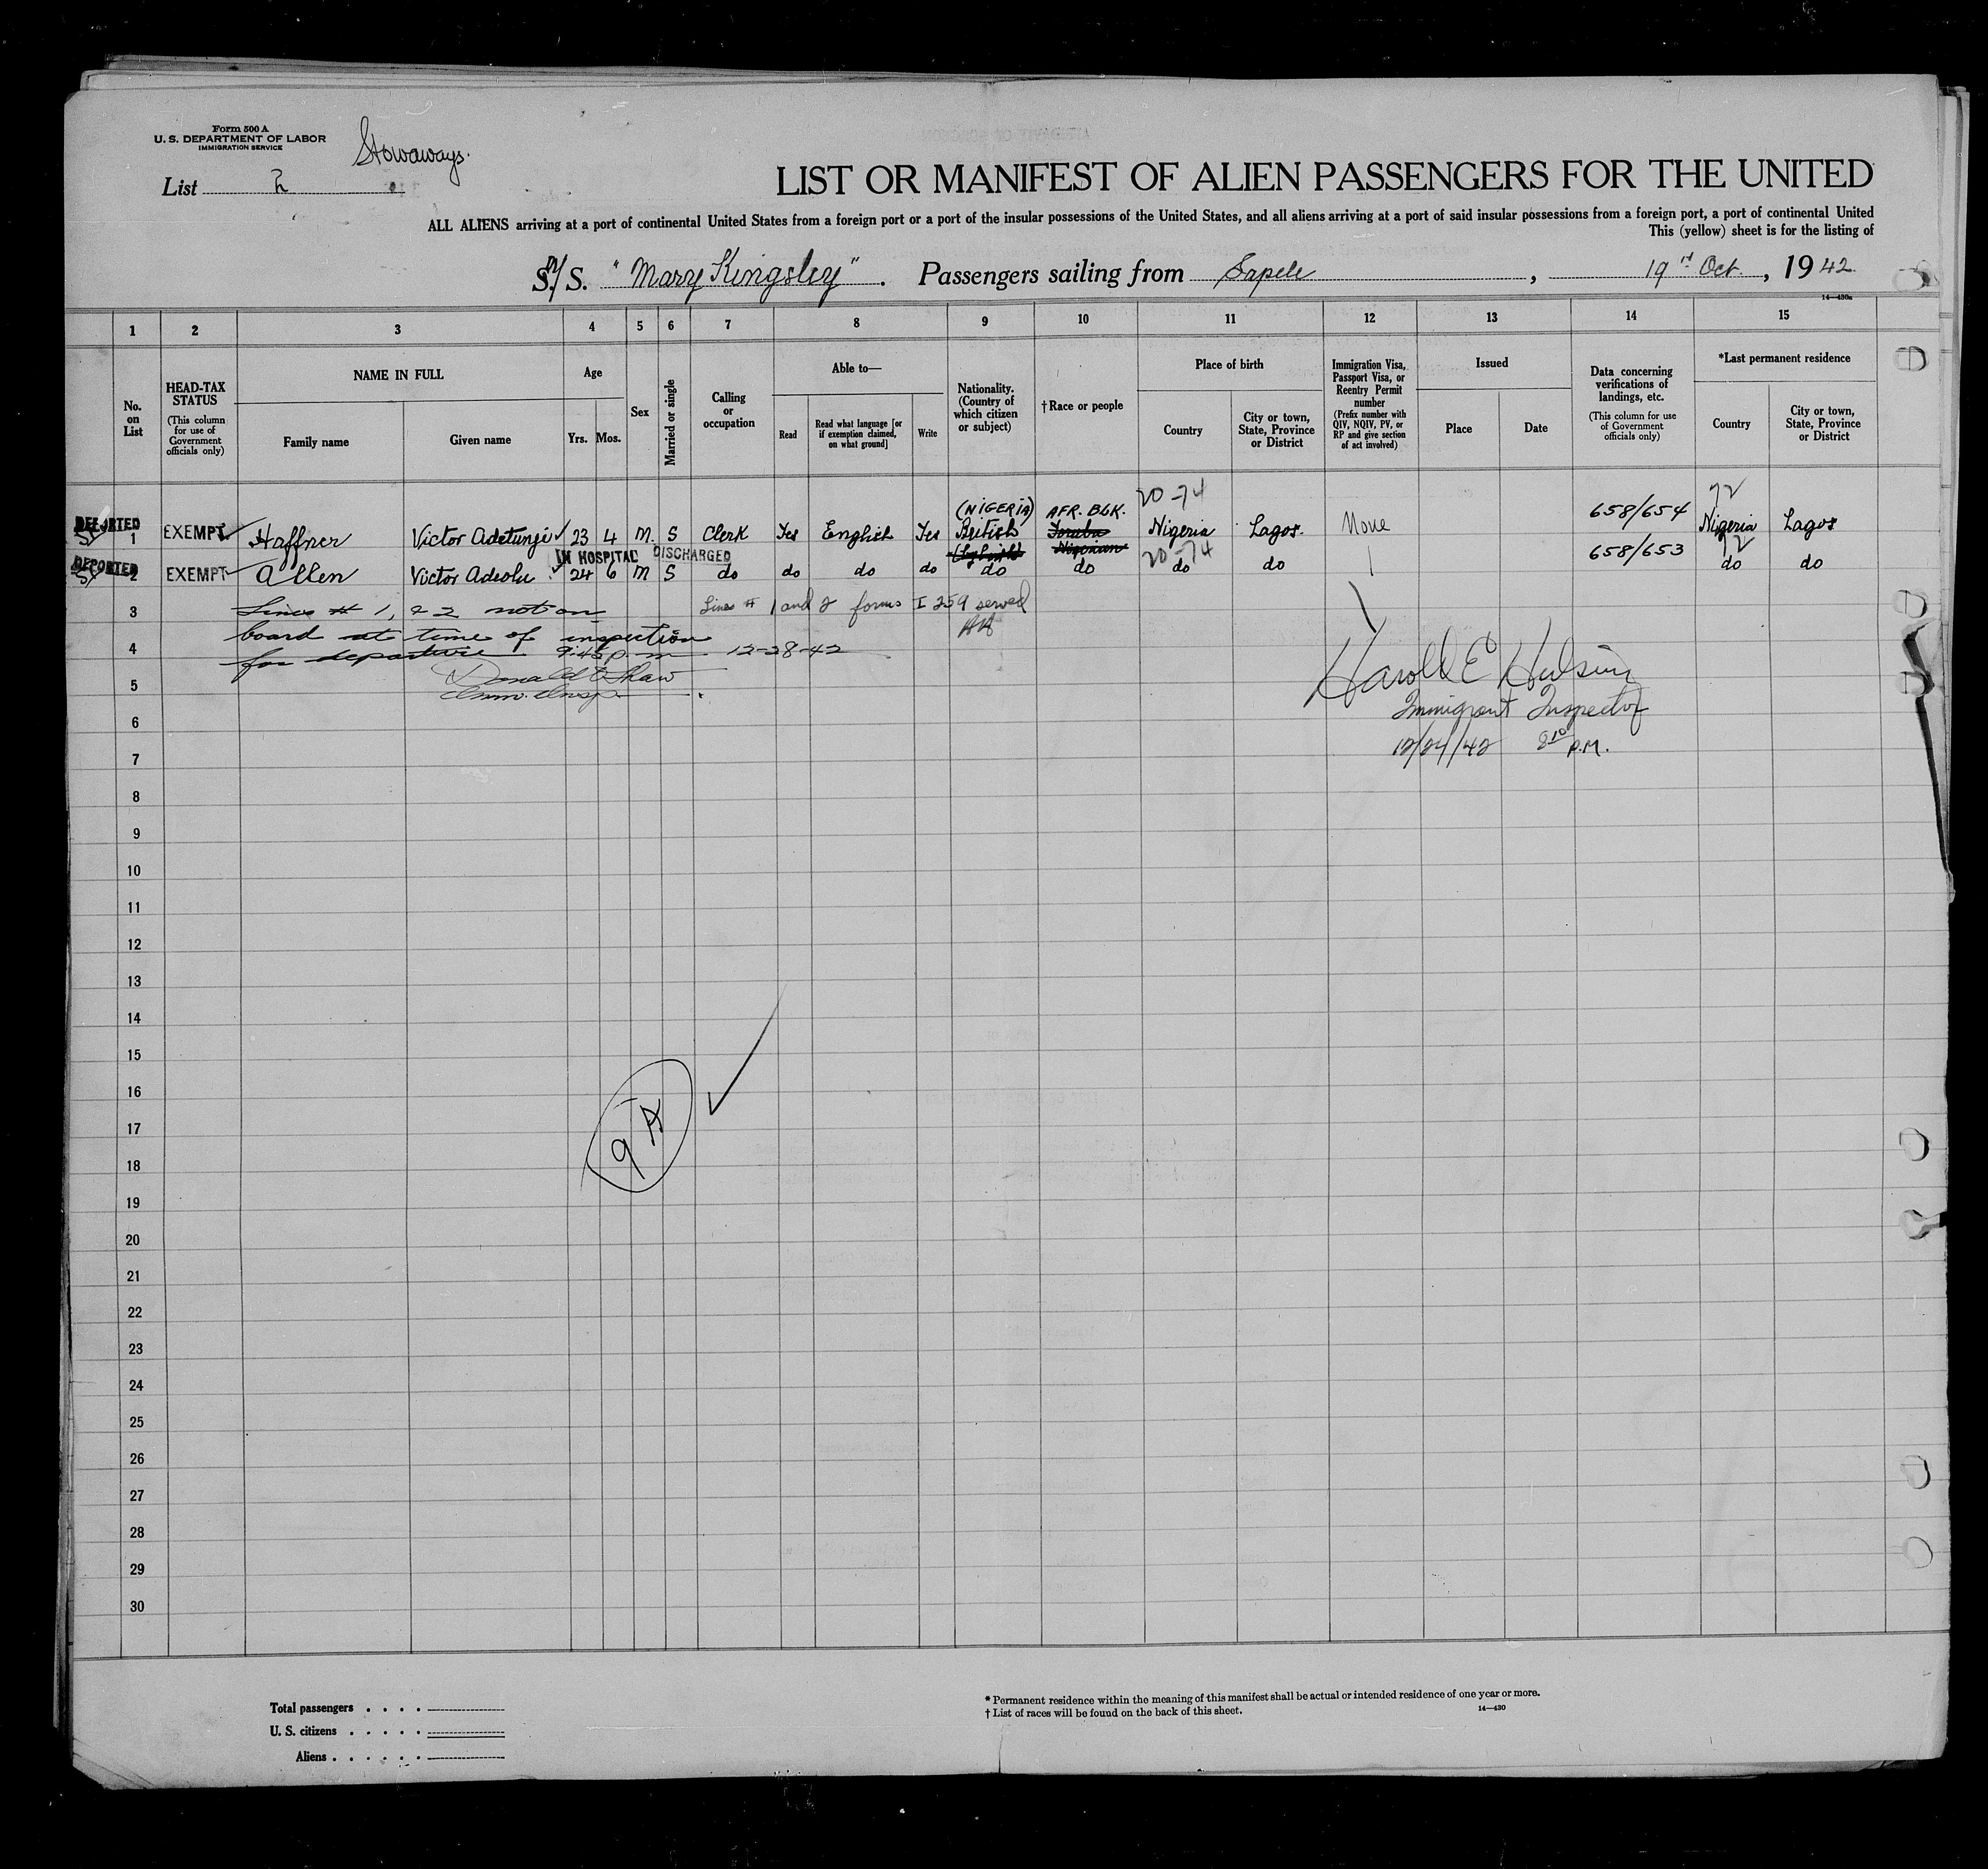 Form 500 A
U. S. DEPARTMENT OF LABOR
IMMIGRATION SERVICE
Stowaways.
List 2
LIST OR MANIFEST OF ALIEN PASSENGERS FOR THE UNITED
ALL ALIENS arriving at a port of continental United States from a foreign port or a port of the insular possessions of the United States, and all aliens arriving at a port of said insular possessions from a foreign port, a port of continental United
This (yellow) sheet is for the listing of
S. S. "Mary Kingsley". Passengers sailing from Sapele, 19 Oct., 1942
14—430a
1 2 3 4 5 6 7 8 9 10 11 12 13 14 15
No. on List
HEAD-TAX STATUS
(This column for use of Government officials only)
NAME IN FULL
Family name
Given name
Age
Yrs.
Mos.
Sex
Married or single
Calling or occupation
Able to—
Read
Read what language [or if exemption claimed, on what ground]
Write
Nationality. (Country of which citizen or subject)
†Race or people
Place of birth
Country
City or town, State, Province or District
Immigration Visa, Passport Visa, or Reentry Permit number
(Prefix number with QIV, NQIV, PV, or RP and give section of act involved)
Issued
Place
Date
Data concerning verifications of landings, etc.
(This column for use of Government officials only)
*Last permanent residence
Country
City or town, State, Province or District
(NIGERIA) AFR. BLK. 20-74 658/654 72
DEPORTED 1 EXEMPT Haffner Victor Adetunji 23 4 M. S Clerk Yes English Yes British Yoruba Nigeria Lagos. None Nigeria Lagos
IN HOSPITAL DISCHARGED Nigerian 20-74 658/653 72
DEPORTED 2 EXEMPT Allen Victor Adeolu 24 6 M S do do do do do do do do do do
3 Lines # 1, & 2 not on Lines # 1 and 2 forms I 259 served
board at time of inspection
4 for departure 9:45 p.m. 12-28-42
5 Donald E Shaw
Imm. Insp.
Harold E
6 Immigrant Inspector
7 12/24/42 8 10 P.M.
8
9
10
11
12
13
14
15
16
17
18
19
20
21
22
23
24
25
26
27
28
29
30
Total passengers
U. S. citizens
Aliens
* Permanent residence within the meaning of this manifest shall be actual or intended residence of one year or more.
† List of races will be found on the back of this sheet.
14—430